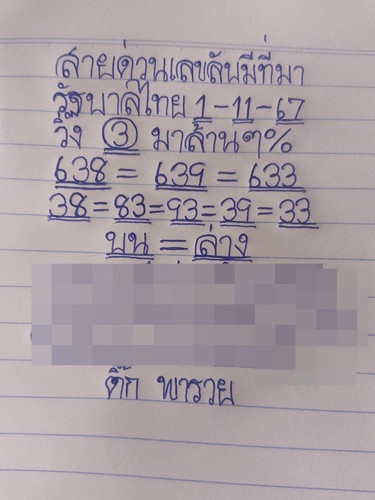 สายด่วนเลขลับมีที่มา
รัฐบาลไทย 1-11-67
วิ่ง 3 มาล้านๆ%
638 = 639 = 633
38=83=93=39=33
บน = ล่าง
ติ๊ก พารวย